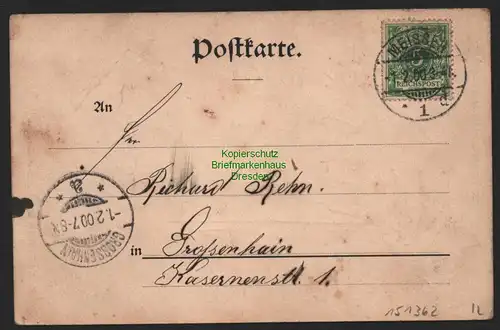 Postkarte.
MEISSEN
1.2.00
REICHSPOST
* 1
An
Kopierschutz
Briefmarkenhaus
Dresden
Richard Rehn.
-1.2.00.7-8
GROSSENHAIN
in Großenhain
Kasernenstr. 1.
151362